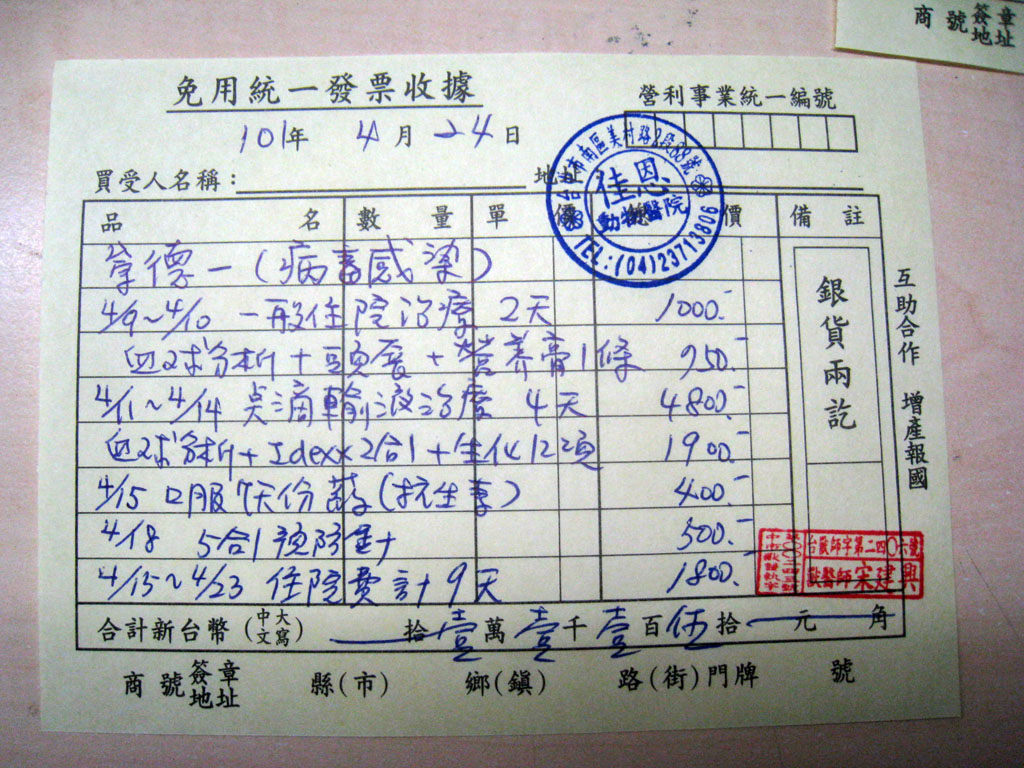 商號簽章地址
免用統一發票收據
營利事業統一編號
101年 4月 24日
買受人名稱：
地址
台中市南區美村路2段68號
佳恩
動物醫院
TEL:(04)23713806
品名 數量 單價 總價 備註
崇德一(病毒感染)
4/9~4/10 一般住院治療 2天 1000.-
血球分析+頭套+營养膏1條 950.-
4/11~4/14 点滴輸液治療 4天 4800.-
血球分析+Idexx2合1+生化12項 1900.-
4/15 口服7天份药(抗生素) 400.-
4/18 5合1預防針 500.-
4/15~4/23 住院費計9天 1800.-
銀貨兩訖
互助合作 增產報國
台獸師字第二四〇六號
獸醫師宋建興
合計新台幣(中文大寫) 拾壹萬壹千壹百伍拾元角
商號簽章地址 縣(市) 鄉(鎮) 路(街)門牌 號